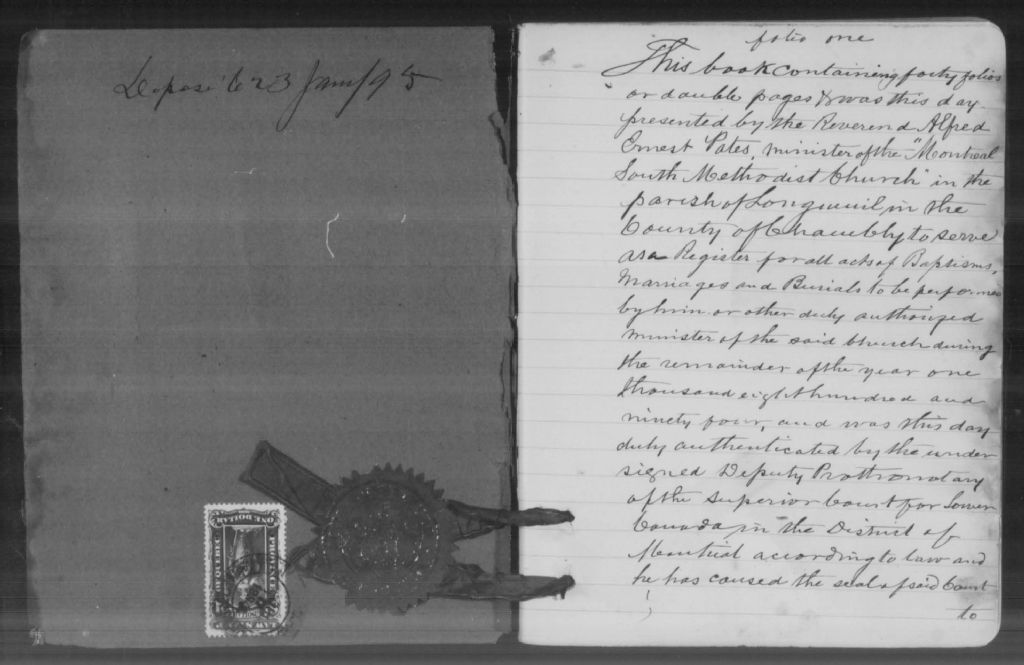 Deposé le 23 Jany 95
ONE DOLLAR
PROVINCE
OF QUEBEC
LAW
folio one
This book containing forty folios
or double pages & was this day
presented by the Reverend Alfred
Ernest Pates, minister of the "Montreal
South Methodist Church" in the
parish of Longueuil, in the
County of Chambly to serve
as a Register for all acts of Baptisms,
Marriages and Burials to be performed
by him or other duly authorized
minister of the said Church during
the remainder of the year one
thousand eight hundred and
ninety four, and was this day
duly authenticated by the under
signed Deputy Prothonotary
of the Superior Court for Lower
Canada, in the District of
Montreal according to law and
he has caused the seal of said Court
to